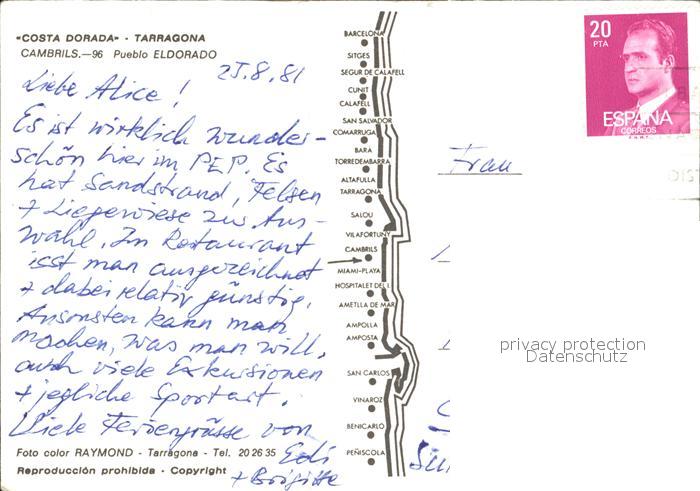 «COSTA DORADA» - TARRAGONA
CAMBRILS.—96 Pueblo ELDORADO
25.8.81
Liebe Alice!
Es ist wirklich wunder-
schön hier im PEP. Es
hat Sandstrand, Felsen
+ Liegewiese zur Aus-
wahl. Im Restaurant
isst man ausgezeichnet
+ dabei relativ günstig.
Ansonsten kann man
machen, was man will,
auch viele Exkursionen
+ jegliche Sportart.
Liebe Feriengrüsse von
Edi
+ Brigitte
Foto color RAYMOND - Tarragona - Tel. 20 26 35
Reproducción prohibida - Copyright
BARCELONA
SITGES
SEGUR DE CALAFELL
CUNIT
CALAFELL
SAN SALVADOR
COMARRUGA
BARA
TORREDEMBARRA
ALTAFULLA
TARRAGONA
SALOU
VILAFORTUNY
CAMBRILS
MIAMI-PLAYA
HOSPITALET DEL I.
AMETLLA DE MAR
AMPOLLA
AMPOSTA
SAN CARLOS
VINAROZ
BENICARLO
PEÑISCOLA
20
PTA
ESPAÑA
CORREOS
Frau
privacy protection
Datenschutz